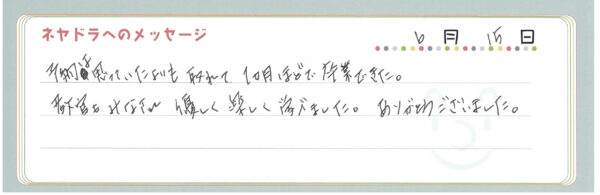 ネヤドラへのメッセージ
6月 15日
予約も思っていたよりも取れて 1カ月ほどで卒業できた。
教官もみなさん 優しく 楽しく 学べました。 ありがとうございました。